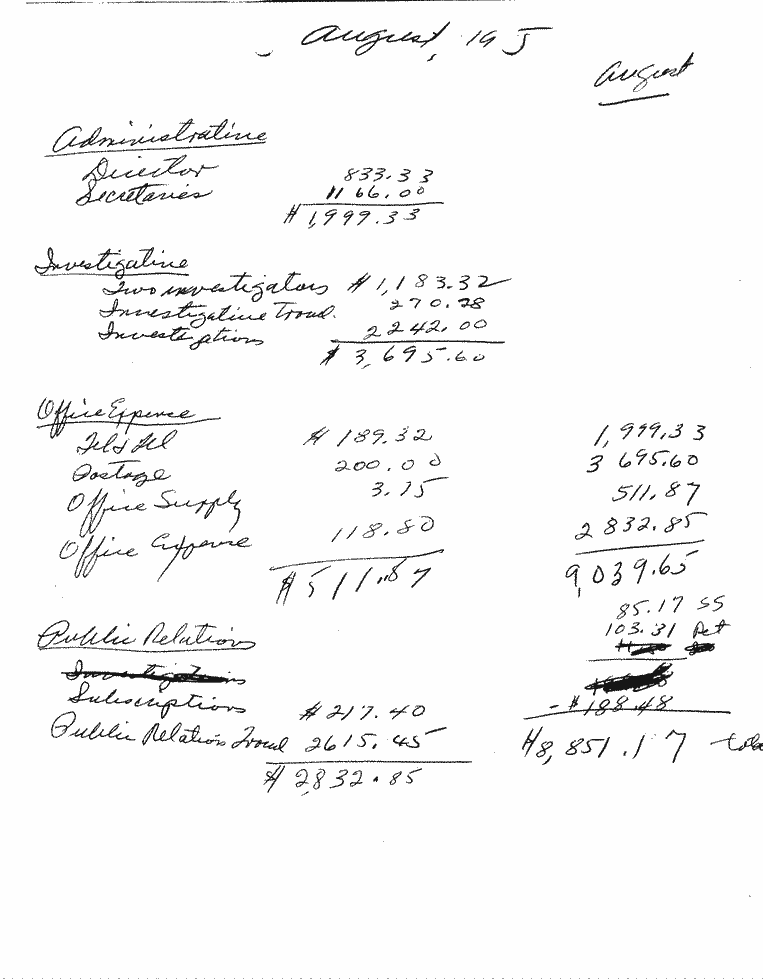 August, 195
August
Administrative
Director 833.33
Secretaries 1166.00
$1,999.33
Investigative
Two investigators $1,183.32
Investigative Travel. 270.28
Investigations 2242.00
$3,695.60
Office Expense
Tel & Tel $189.32 1,999.33
Postage 200.00 3 695.60
Office Supply 3.75 511.87
Office Expense 118.80 2 832.85
$511.87 9,039.65
85.17 SS
Public Relations 103.31 Ret
Investigations
Subscriptions $217.40 -$188.48
Public Relation Travel 2615.45 $8,851.17
$2832.85